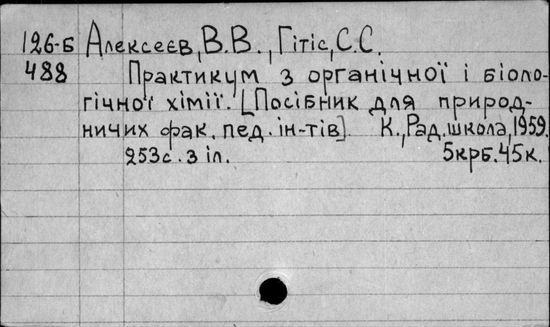 126-Б Алексеєв, В.В., Гітіс, С.С.
488 Практикум з органічної і біоло-
гічної хімії. [Посібник для природ-
ничих фак. пед. ін-тів]. К., Рад. школа, 1959.
253с. з іл. 5крб. 45к.